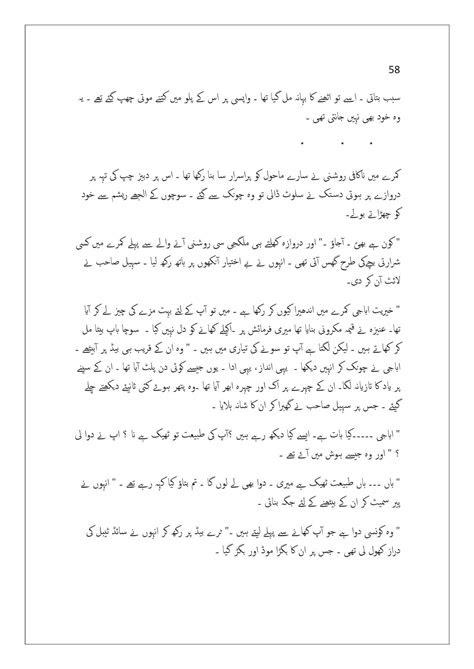 58
سبب بتاتی ۔ اسے تو اٹھنے کا بہانہ مل گیا تھا ۔ واپسی پر اس کے پلو میں کتنے موتی چھپ گئے تھے ۔ یہ
وہ خود بھی نہیں جانتی تھی ۔
* * *
کمرے میں ناکافی روشنی نے سارے ماحول کو پراسرار سا بنا رکھا تھا ۔ اس پر دبیز چپ کی تہہ پر
دروازے پر ہوتی دستک نے سلوٹ ڈالی تو وہ چونک سے گئے ۔ سوچوں کے الجھے ریشم سے خود
کو چھڑاتے بولے۔
" کون ہے بھئ ۔ آجاؤ ۔" اور دروازہ کھلتے ہی ملگجی سی روشنی آنے والے سے پہلے کمرے میں کسی
شرارتی بچےکی طرح گھس آئی تھی ۔ انہوں نے بے اختیار آنکھوں پر ہاتھ رکھ لیا ۔ سہیل صاحب نے
لائٹ آن کر دی۔
" خیریت اباجی کمرے میں اندھیرا کیوں کر رکھا ہے ۔ میں تو آپ کے لئے بہت مزے کی چیز لے کر آیا
تھا۔ عنیزہ نے قیمہ مکرونی بنایا تھا میری فرمائش پر ۔اکیلے کھانے کو دل نہیں کیا ۔ سوچا باپ بیٹا مل
کر کھاتے ہیں ۔ لیکن لگتا ہے آپ تو سونے کی تیاری میں ہیں ۔ " وہ ان کے قریب ہی بیڈ پر آبیٹھے ۔
اباجی نے چونک کر انہیں دیکھا ۔ یہی انداز ، یہی ادا ۔ یوں جیسے کوئی دن پلٹ آیا تھا ۔ ان کے سینے
پر یاد کا تازیانہ لگا۔ ان کے چہرے پر اک اور چہرہ ابھر آیا تھا ۔وہ پتھر ہوئے کئی ثانیئے دیکھتے چلے
گیئے ۔ جس پر سہیل صاحب نے گھبرا کر ان کا شانہ ہلایا ۔
" اباجی ۔۔۔۔۔کیا بات ہے۔ ایسے کیا دیکھ رہے ہیں ؟آپ کی طبیعت تو ٹھیک ہے نا ؟ اپ نے دوا لی
؟ " اور وہ جیسے ہوش میں آئے تھے ۔
" ہاں ۔۔۔ ہاں طبیعت ٹھیک ہے میری ۔ دوا بھی لے لوں گا ۔ تم بتاؤ کیا کہہ رہے تھے ۔ " انہوں نے
پیر سمیٹ کر ان کے بیٹھنے کے لئے جگہ بنائی ۔
" وہ کونسی دوا ہے جو آپ کھانے سے پہلے لیتے ہیں ۔" ٹرے بیڈ پر رکھ کر انہوں نے سائڈ ٹیبل کی
دراز کھول لی تھی ۔ جس پر ان کا بگڑا موڈ اور بگڑ گیا ۔